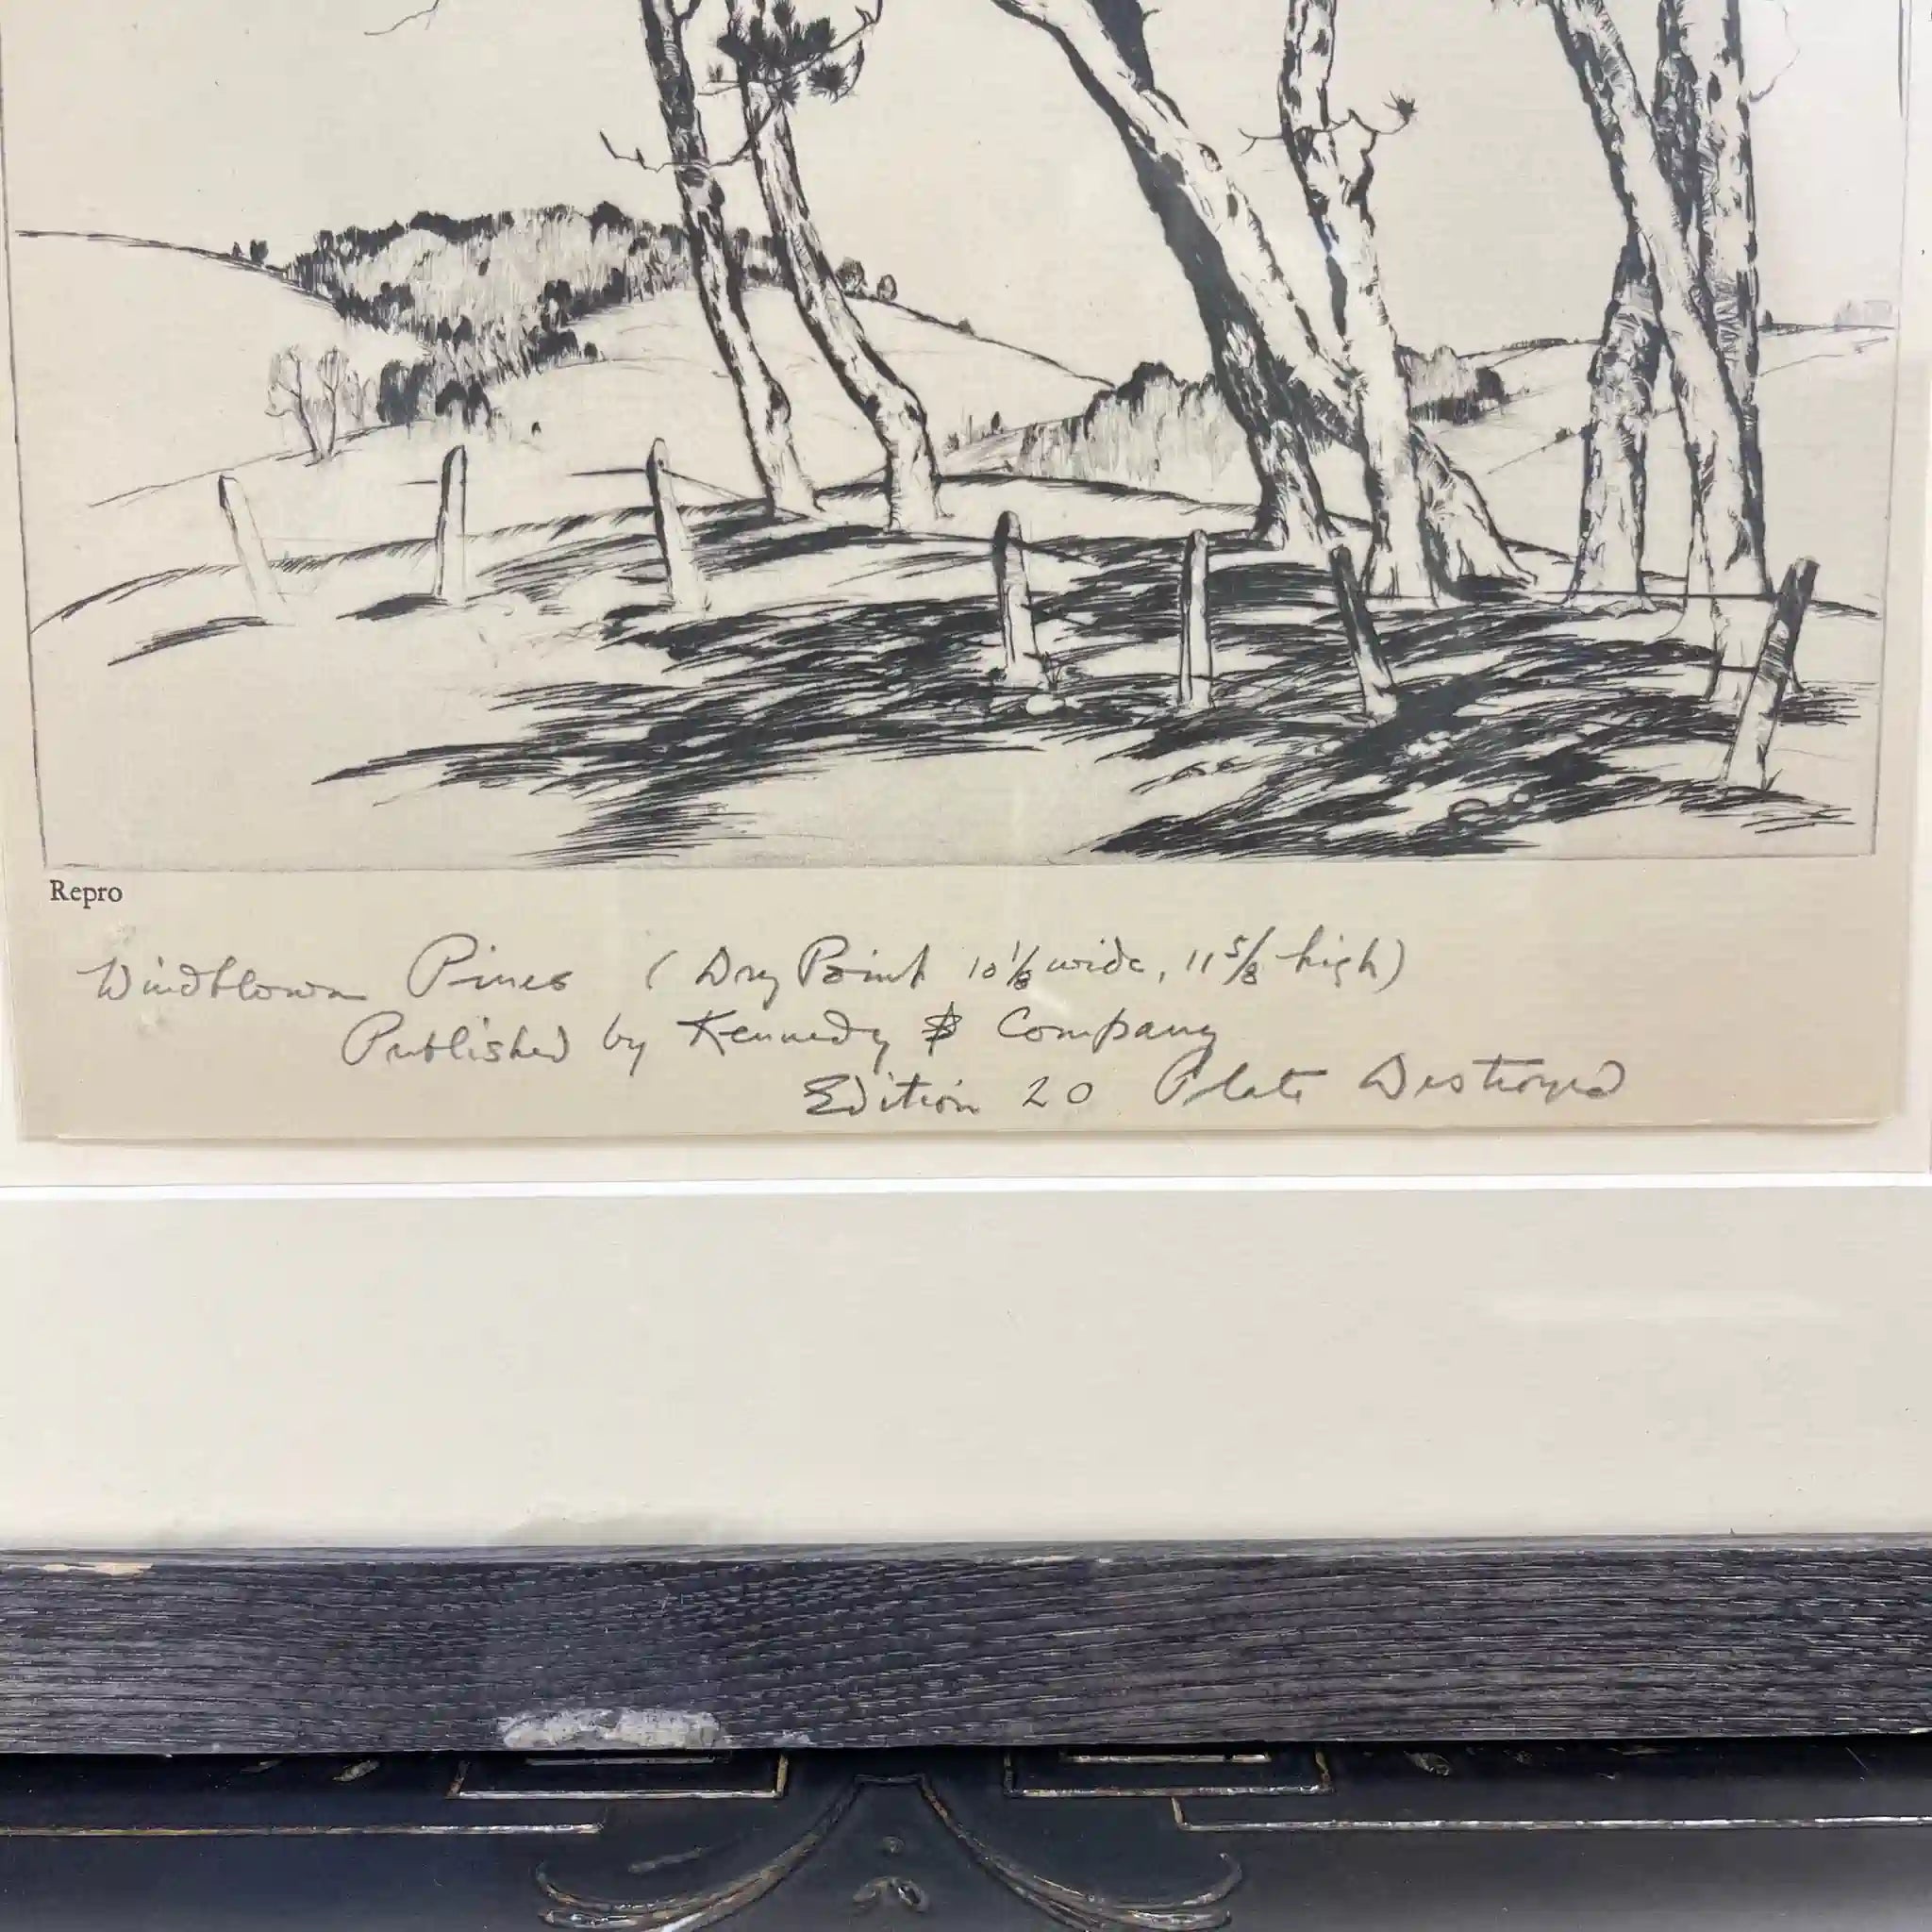 Repro
Windblown Pines (Dry Point 10 1/8 wide, 11 5/8 high)
Published by Kennedy & Company
Edition 20 Plate Destroyed